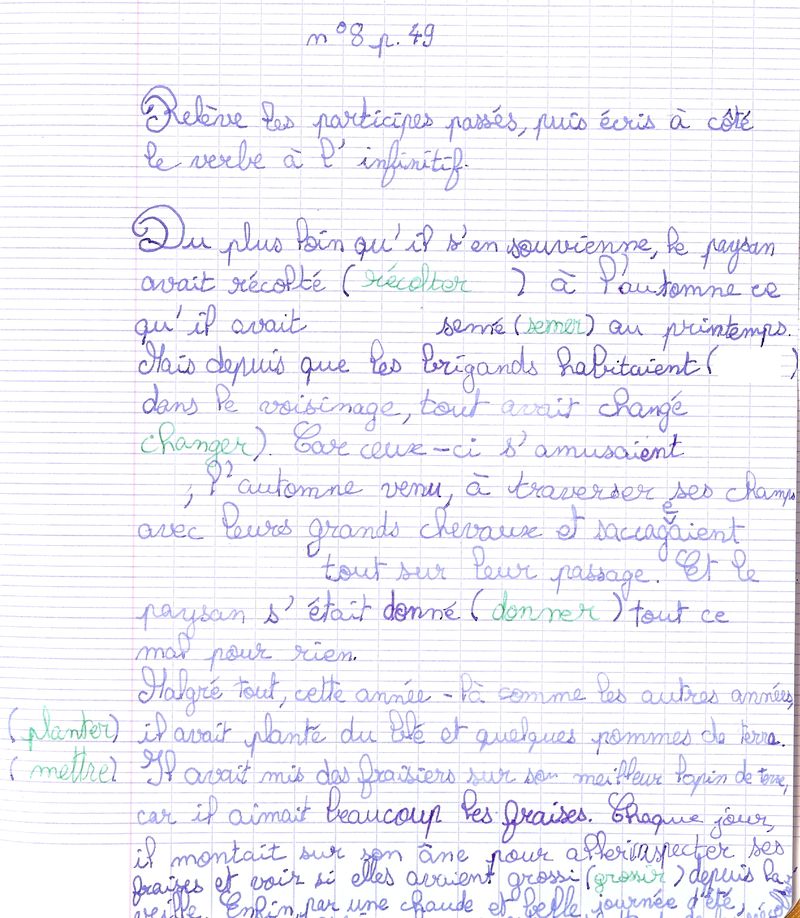 n°8 p. 49
Relève les participes passés, puis écris à côté
le verbe à l'infinitif.
Du plus loin qu'il s'en souvienne, le paysan
avait récolté (récolter) à l'automne ce
qu'il avait semé (semer) au printemps.
Mais depuis que les brigands habitaient ( )
dans le voisinage, tout avait changé
changer). Car ceux-ci s'amusaient
, l'automne venu, à traverser ses champs
avec leurs grands chevaux et saccageaient
tout sur leur passage. Et le
paysan s'était donné (donner) tout ce
mal pour rien.
Malgré tout, cette année-là comme les autres années,
(planter) il avait planté du blé et quelques pommes de terra.
(mettre) Il avait mis des fraisiers sur son meilleur lopin de terre,
car il aimait beaucoup les fraises. Chaque jour,
il montait sur son âne pour aller inspecter ses
fraises et voir si elles avaient grossi (grossir) depuis la
veille. Enfin, par une chaude et belle journée d'été,